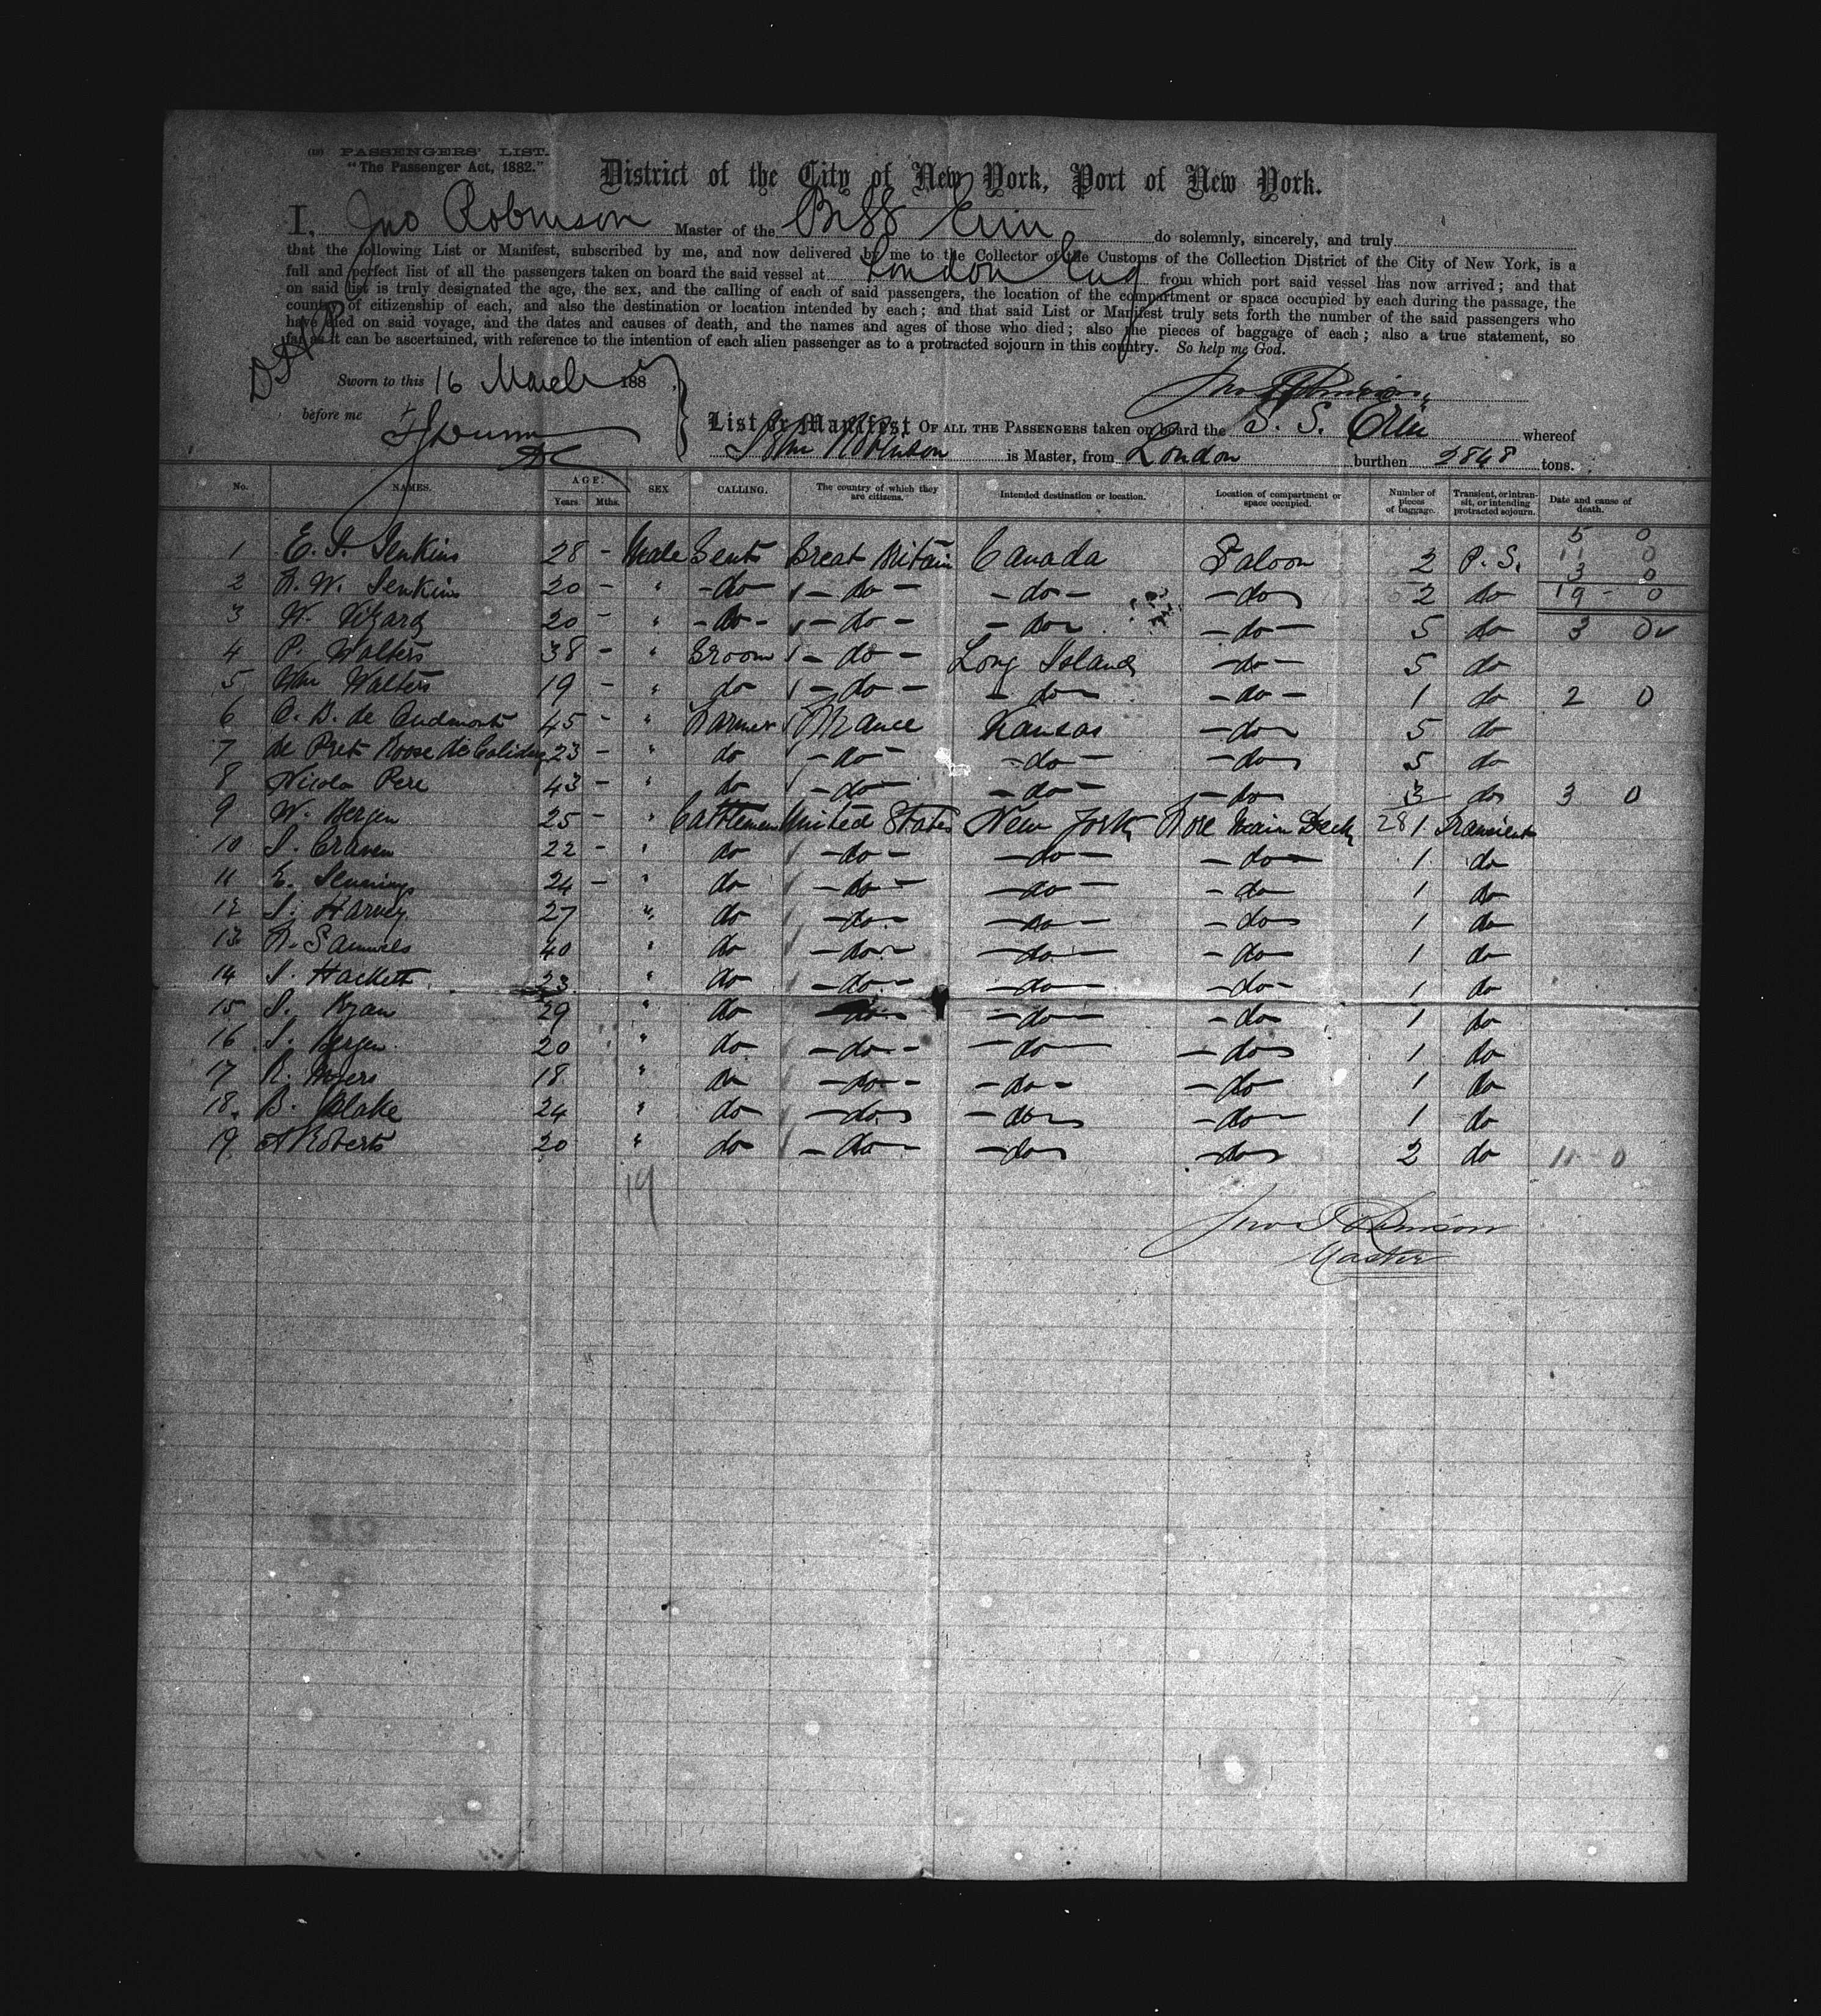 (19) PASSENGERS' LIST.
"The Passenger Act, 1882."
District of the City of New York, Port of New York.
I, Jno Robinson Master of the Br SS Erin do solemnly, sincerely, and truly
that the following List or Manifest, subscribed by me, and now delivered by me to the Collector of the Customs of the Collection District of the City of New York, is a
full and perfect list of all the passengers taken on board the said vessel at London Eng from which port said vessel has now arrived; and that
on said list is truly designated the age, the sex, and the calling of each of said passengers, the location of the compartment or space occupied by each during the passage, the
country of citizenship of each, and also the destination or location intended by each; and that said List or Manifest truly sets forth the number of the said passengers who
have died on said voyage, and the dates and causes of death, and the names and ages of those who died; also the pieces of baggage of each; also a true statement, so
far as it can be ascertained, with reference to the intention of each alien passenger as to a protracted sojourn in this country. So help me God.
Sworn to this 16 March 188
Jno Robinson
before me
List or Manifest OF ALL THE PASSENGERS taken on board the S. S. Erin whereof
John Robinson is Master, from London burthen 2848 tons.
No. NAMES. AGE. Years. Mths. SEX CALLING. The country of which they are citizens. Intended destination or location. Location of compartment or space occupied. Number of pieces of baggage. Transient, or intransit, or intending protracted sojourn. Date and cause of death.
5 0
11 0
3 0
1 E. J. Jenkins 28 - Male Gent Great Britain Canada Saloon 2 P. S.
2 A. W. Jenkins 20 - " - do - - do - - do - - do 2 do 19 - 0
3 W. Vizard 20 - " - do - - do - - do - do - 5 do 3 0
4 P. Walters 38 - " Groom - do - Long Island - do - 5 do
5 Wm Walters 19 - " do - do - - do - do - 1 do 2 0
6 45 - " Farmer France Kansas - do 5 do
7 de Pret Roose de 23 - " do - do - - do - - do 5 do
8 Nicola Pere 43 - " do - do - - do - - do 3 do 3 0
28
9 W. Bergen 25 - " Cattlemen United States New York Fore Main Deck 1 Transient
10 J. Craven 22 - " do - do - - do - - do - 1 do
11 E. Jennings 24 - " do - do - - do - - do 1 do
12 J. Harvey 27 " do - do - - do - - do 1 do
13 A. Samuels 40 " do - do - - do - - do 1 do
14 J. Hackett 23 " do - do - - do - - do - 1 do
15 J. Ryan 29 " do - do - do - - do 1 do
16 J. Bergen 20 " do - do - - do - - do 1 do
17 R. Myers 18 " do - do - - do - - do 1 do
18 B. Blake 24 " do - do - do - do 1 do
19 A Roberts 20 " do - do - - do - do 2 do 11 - 0
19
Jno Robinson
Master